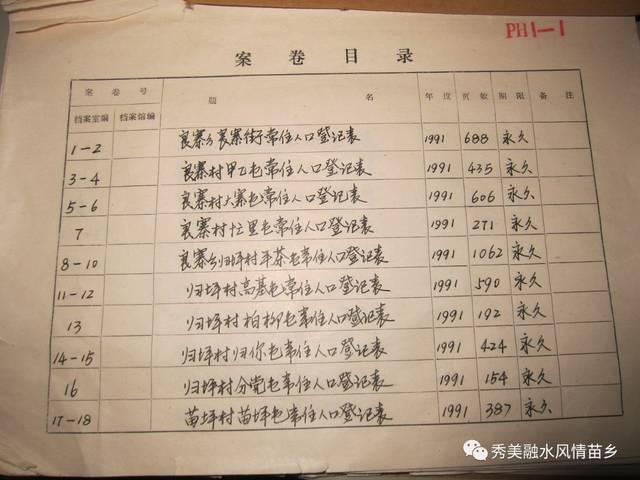 PH1-1
案卷目录
案卷号 题名 年度 页数 期限 备注
档案室编 档案馆编
1-2 良寨乡良寨街常住人口登记表 1991 688 永久
3-4 良寨村甲乙屯常住人口登记表 1991 435 永久
5-6 良寨村大寨屯常住人口登记表 1991 606 永久
7 良寨村忙里屯常住人口登记表 1991 271 永久
8-10 良寨乡归坪村平茶屯常住人口登记表 1991 1062 永久
11-12 归坪村高基屯常住人口登记表 1991 590 永久
13 归坪村柏柳屯常住人口登记表 1991 192 永久
14-15 归坪村归你屯常住人口登记表 1991 424 永久
16 归坪村分党屯常住人口登记表 1991 154 永久
17-18 苗坪村苗坪屯常住人口登记表 1991 387 永久
秀美融水风情苗乡